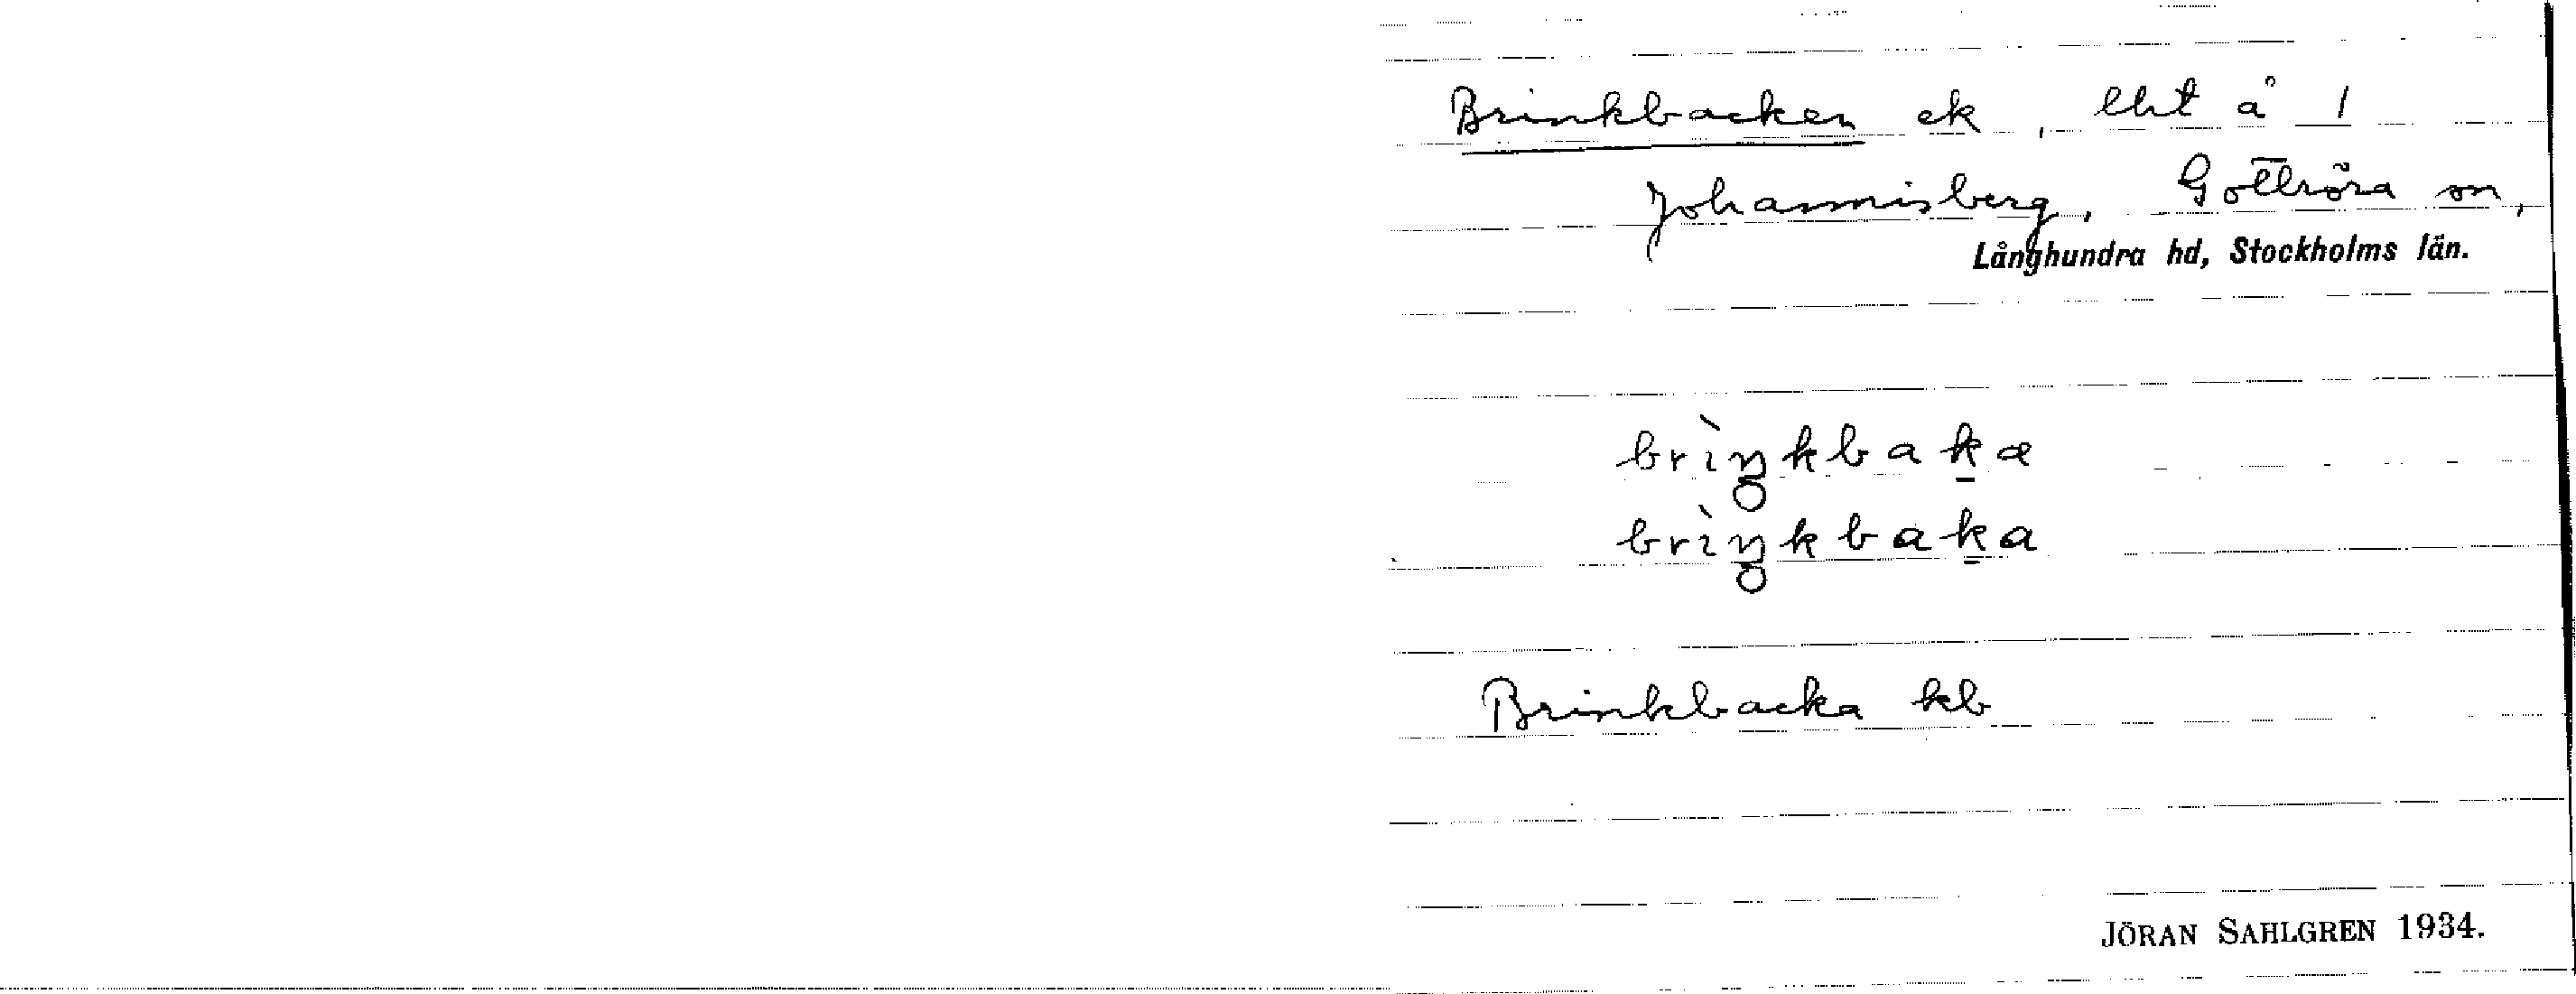 Brinkbacken ek, lht å 1
Johannisberg, Gottröra sn,
Långhundra hd, Stockholms län.
brìŋkbaka
brìŋkbaka
Brinkbacka kb
JÖRAN SAHLGREN 1934.